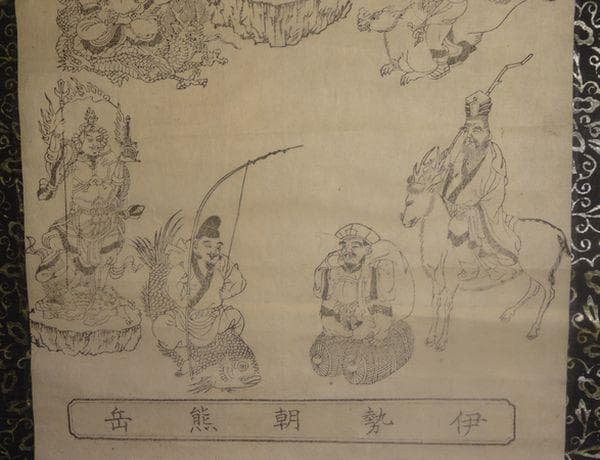 伊勢朝熊岳